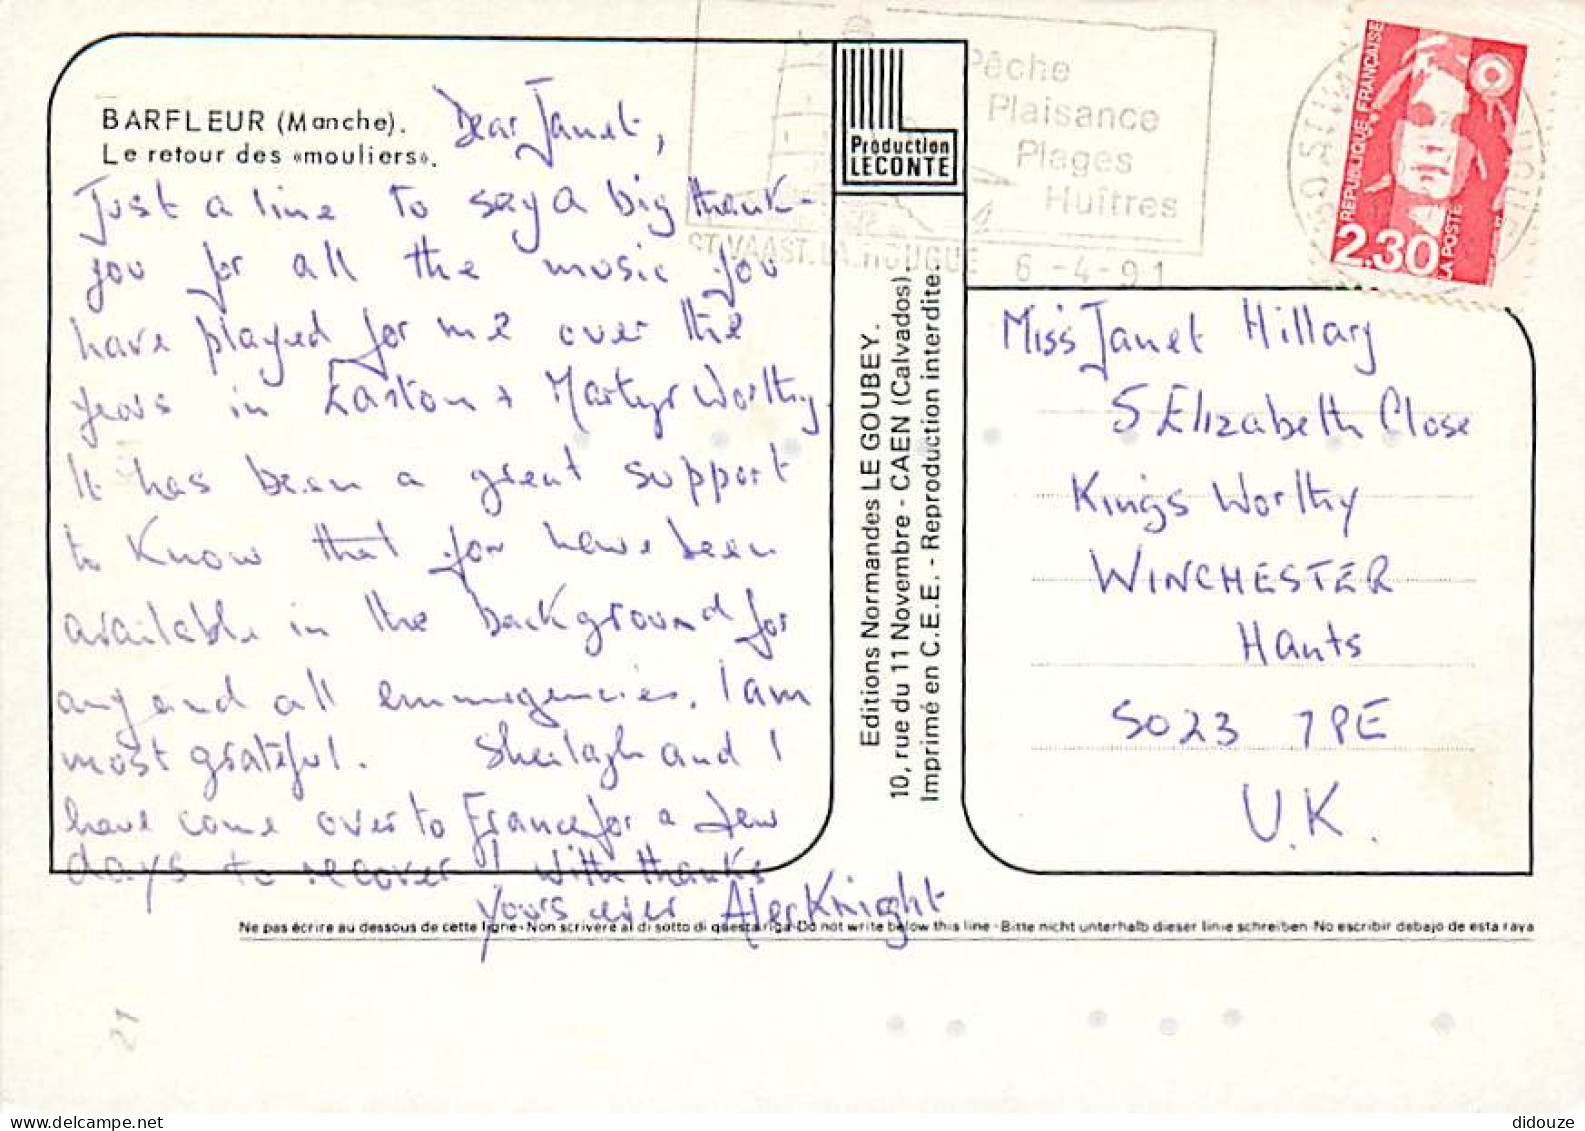 BARFLEUR (Manche).
Le retour des «mouliers».
Dear Janet,
Just a line to say a big thank-
you for all the music you
have played for me over the
years in Easton + Martyr Worthy.
It has been a great support
to know that you have been
available in the background for
any and all emmergencies. I am
most grateful. Sheilagh and I
have come over to France for a few
days to recover! With thanks
Yours ever Alex Knight
Production
LECONTE
Editions Normandes LE GOUBEY.
10, rue du 11 Novembre - CAEN (Calvados).
Imprimé en C.E.E. - Reproduction interdite.
Pêche
Plaisance
Plages
Huîtres
ST. VAAST. LA. HOUGUE 6 -4- 91
REPUBLIQUE FRANÇAISE
2,30
LA POSTE
Miss Janet Hillary
5 Elizabeth Close
Kings Worthy
WINCHESTER
Hants
SO23 7PE
U.K.
Ne pas écrire au dessous de cette ligne - Non scrivere al di sotto di questa riga - Do not write below this line - Bitte nicht unterhalb dieser linie schreiben - No escribir debajo de esta raya
21
didouze